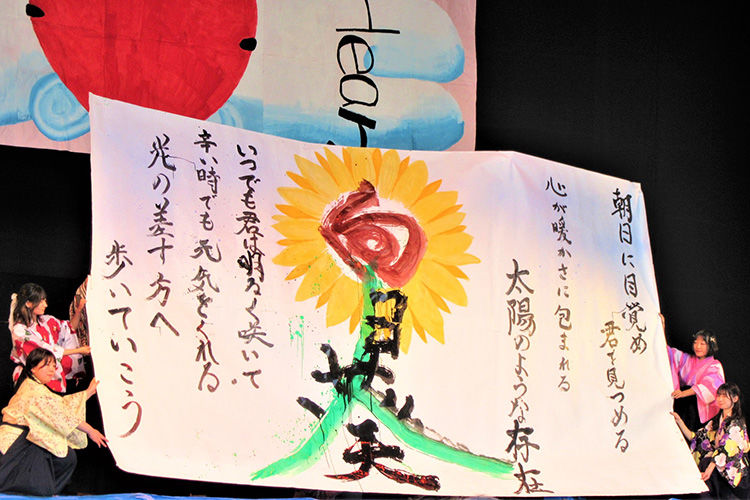 Hear
朝日に目覚め
君を見つめる
心が暖かさに包まれる
太陽のような存在
向日葵
いつでも君は明るく咲いて
辛い時でも元気をくれる
光の差す方へ
歩いていこう